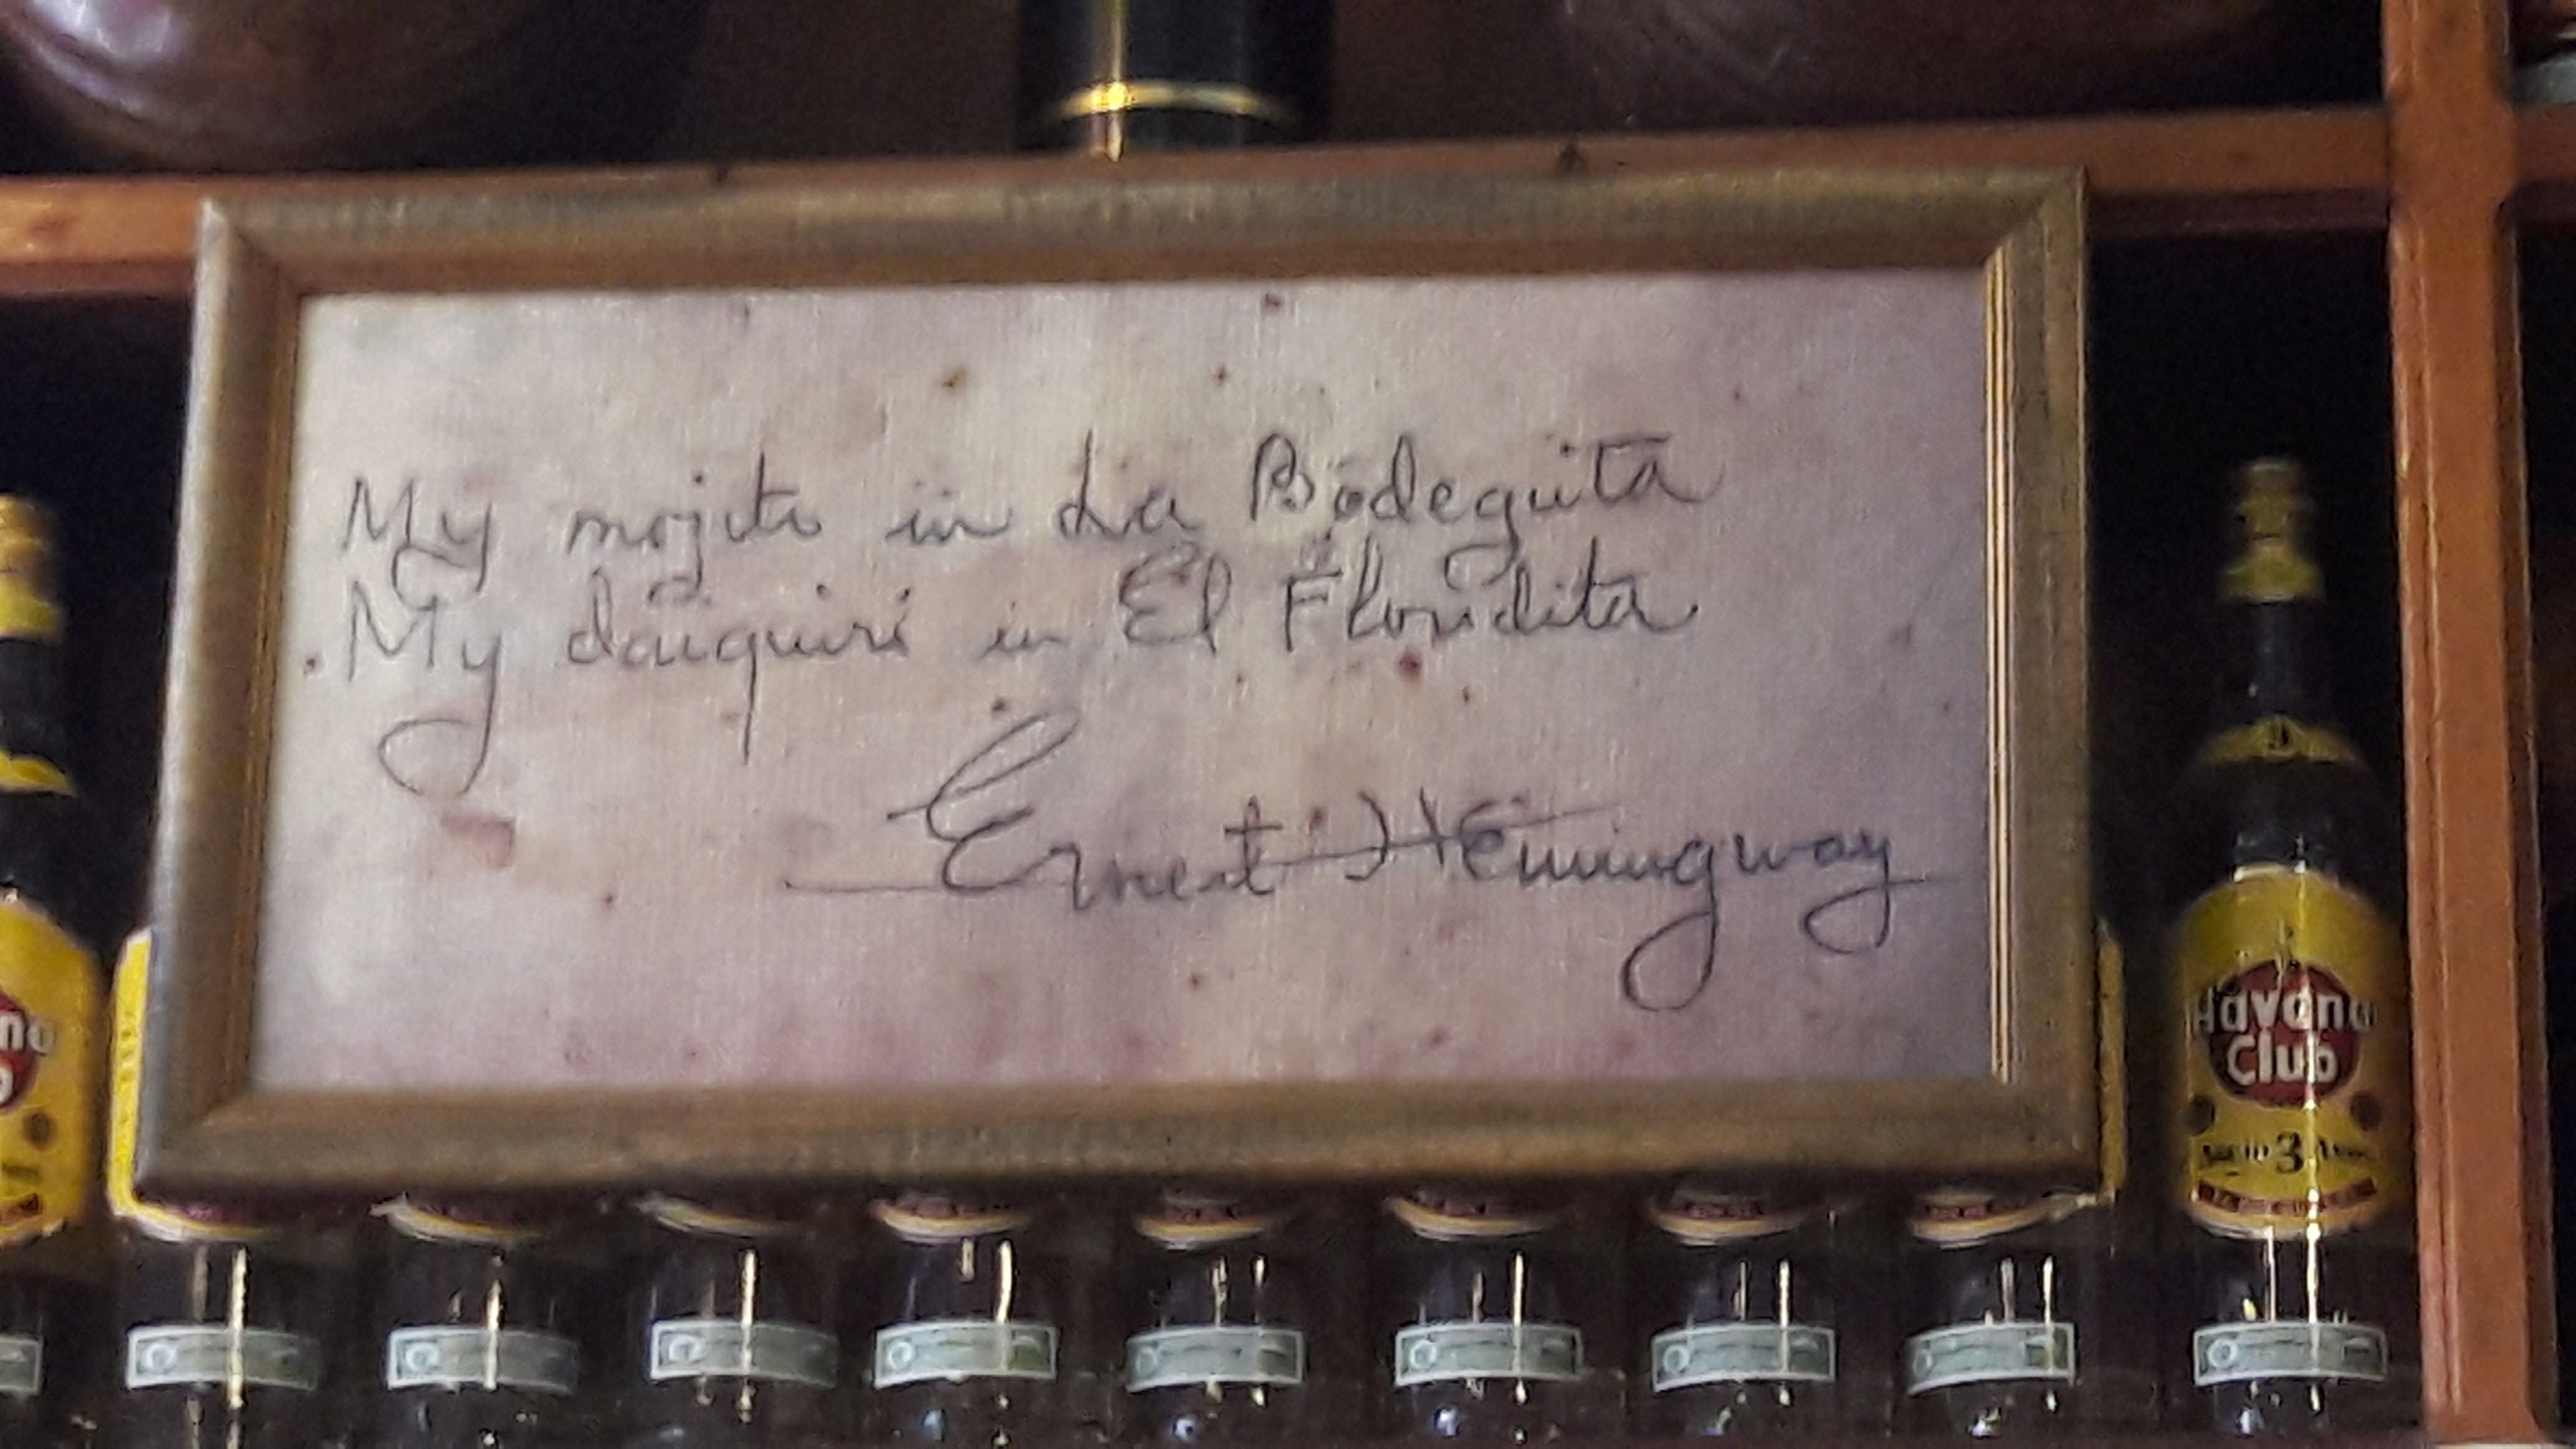 My mojito in La Bodeguita
My daiquiri in El Floridita
Ernest Hemingway
Havana
Club
3